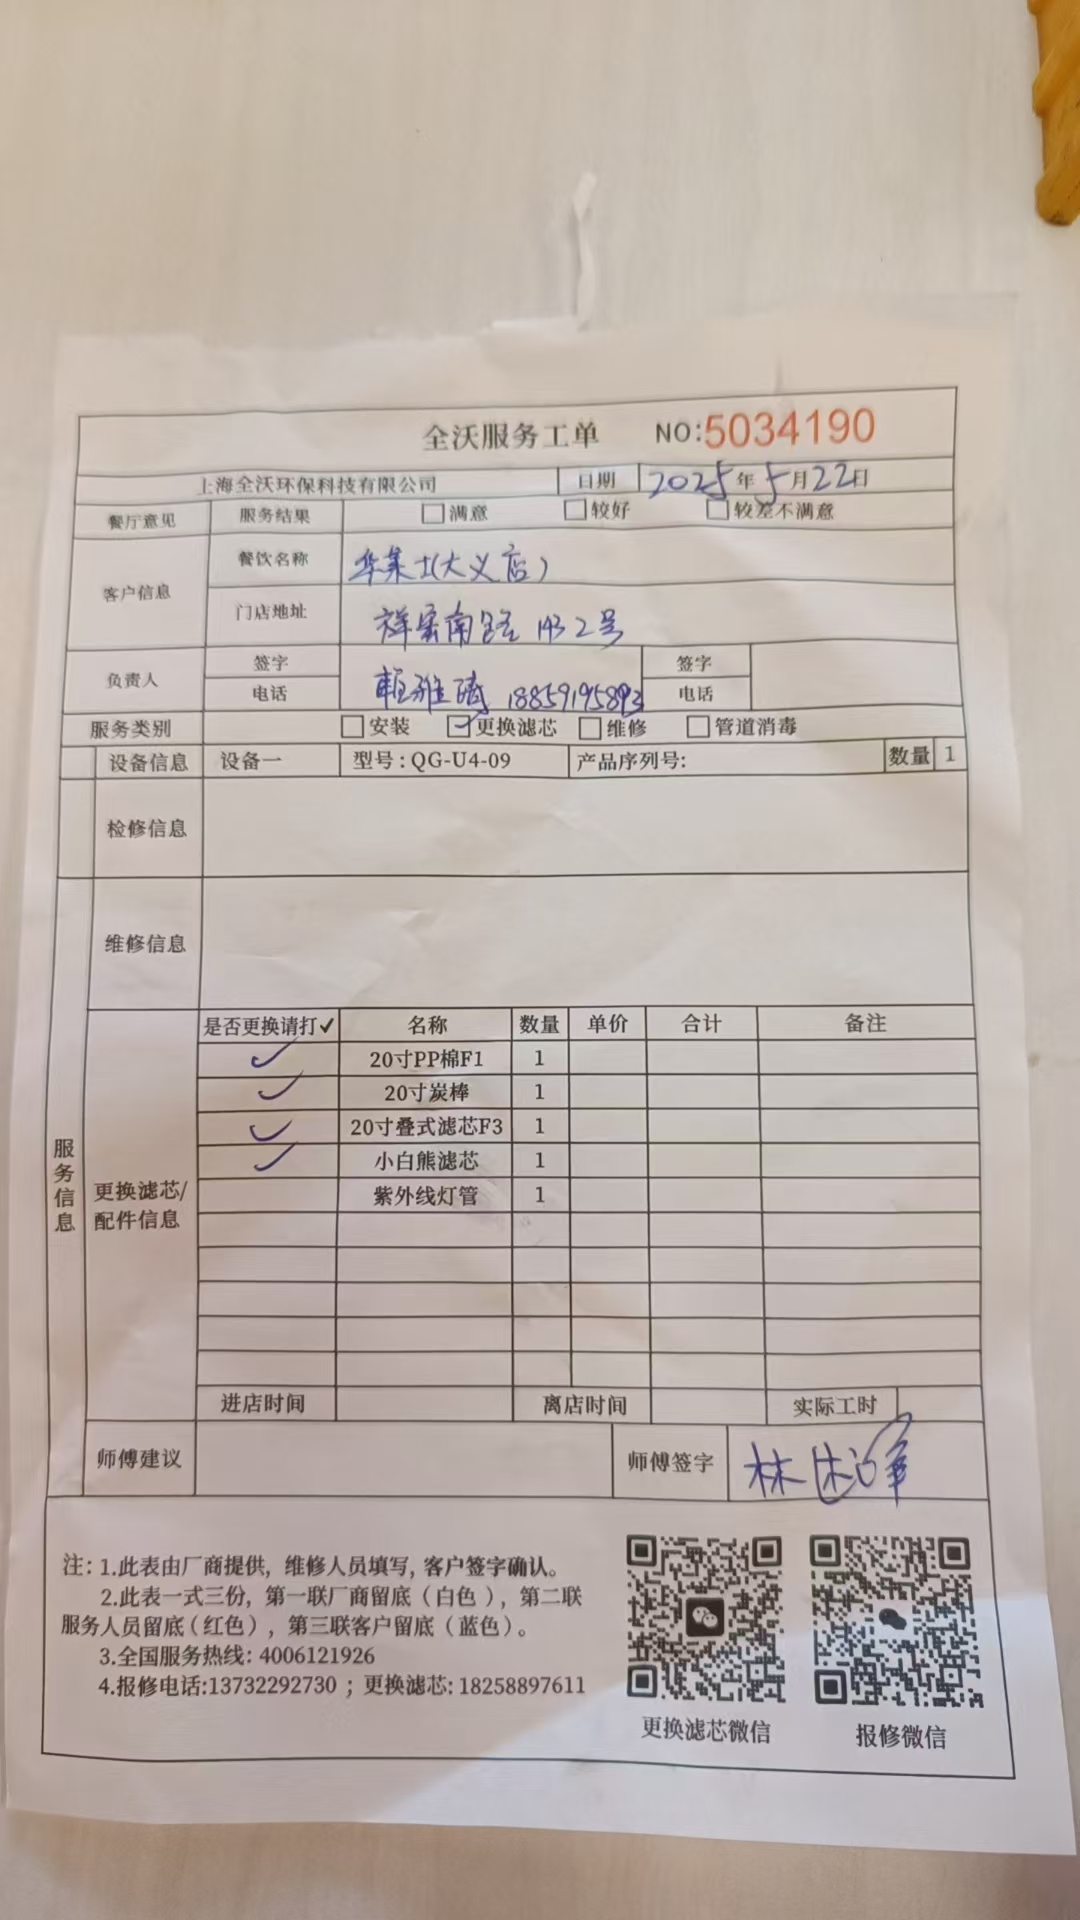 全沃服务工单 NO:5034190
上海全沃环保科技有限公司 日期 2025年5月22日
餐厅意见 服务结果 满意 较好 较差不满意
客户信息 餐饮名称 华莱士(大义店)
门店地址 祥云南路 143 2号
负责人 签字 签字
电话 18859195893 电话
服务类别 安装 更换滤芯 维修 管道消毒
设备信息 设备一 型号:QG-U4-09 产品序列号: 数量 1
检修信息
维修信息
服务信息
更换滤芯/
配件信息
是否更换请打✓ 名称 数量 单价 合计 备注
✓ 20寸PP棉F1 1
✓ 20寸炭棒 1
✓ 20寸叠式滤芯F3 1
✓ 小白熊滤芯 1
紫外线灯管 1
进店时间 离店时间 实际工时
师傅建议 师傅签字 林
注: 1.此表由厂商提供, 维修人员填写, 客户签字确认。
2.此表一式三份, 第一联厂商留底(白色), 第二联
服务人员留底(红色), 第三联客户留底(蓝色)。
3.全国服务热线: 4006121926
4.报修电话:13732292730 ; 更换滤芯: 18258897611
更换滤芯微信 报修微信